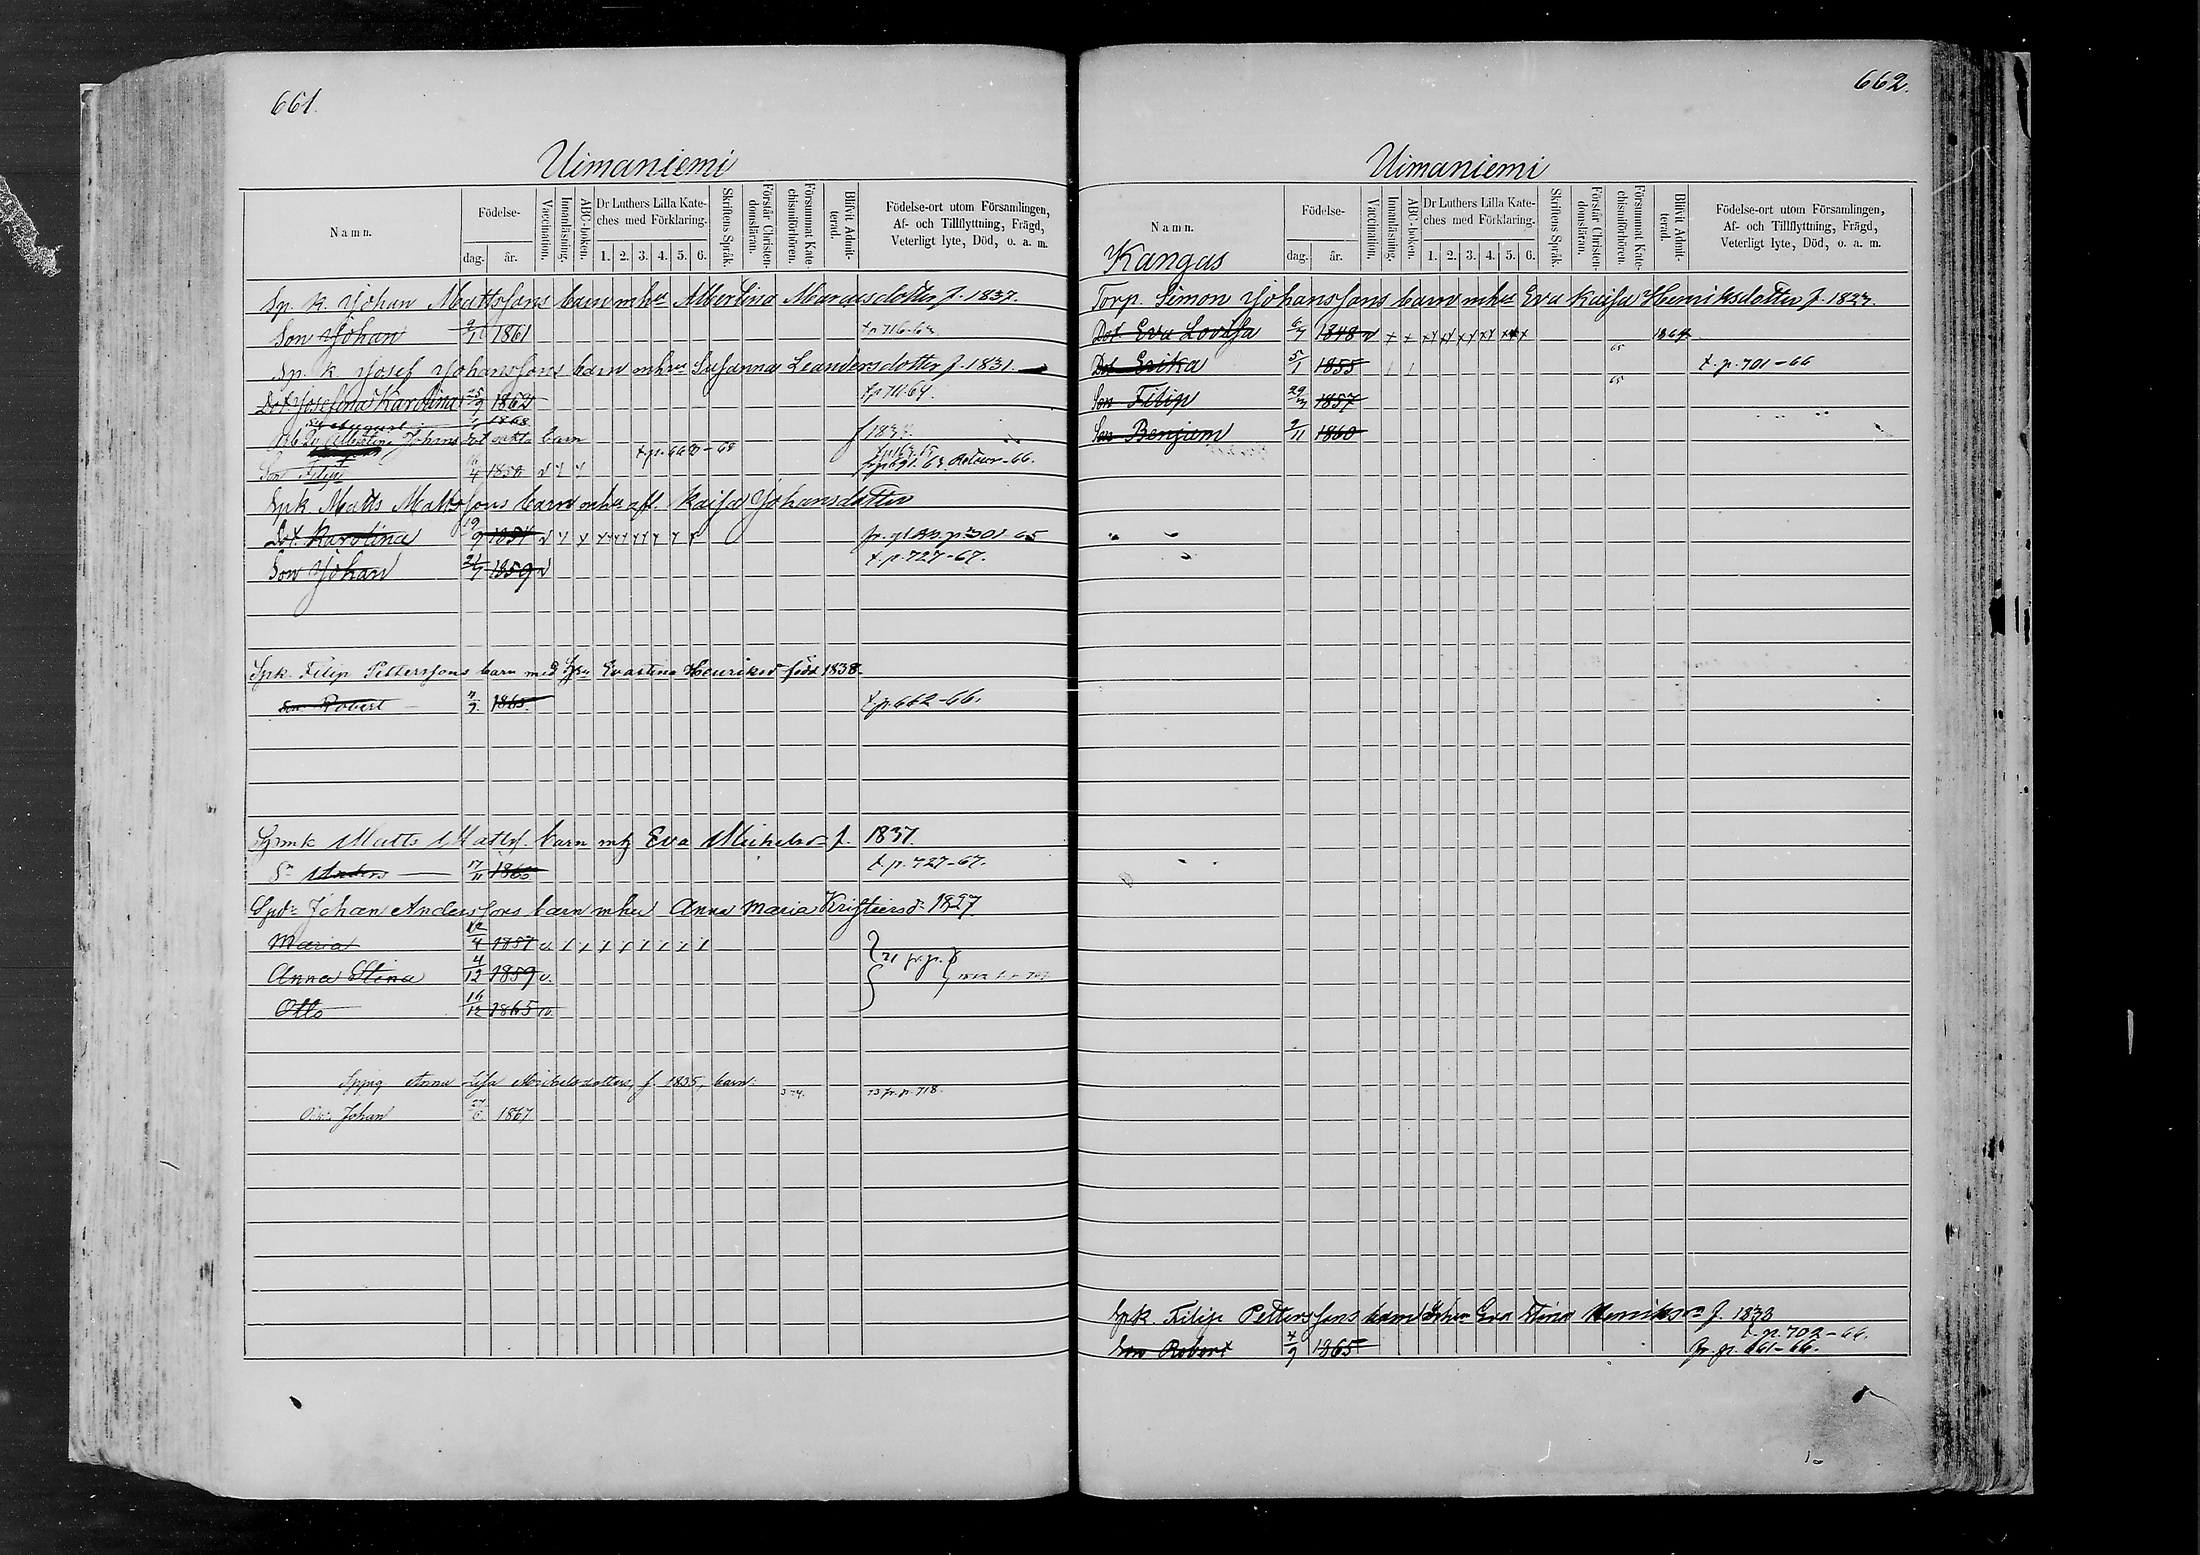 661.
Uimaniemi
Namn. Födelse- dag. år. Vaccination. Innanläsning. ABC-boken. Dr Luthers Lilla Kate-ches med Förklaring. 1. 2. 3. 4. 5. 6. Skriftens Språk. Förstår Christen-domsläran. Försummat Kate-chismiförhören. Blifvit Admit-terad. Födelse-ort utom Församlingen, Af- och Tillflyttning, Frägd, Veterligt lyte, Död, o. a. m.
Sp. k. Johan Mattssons barn mhu Albertina Mariasdotter f. 1837.
Son Johan 1861
Sp. k. Josef Johanssons barn mhu Susanna Leandersdotter f. 1831.
Dot. Josefina Karolina 25/9 1862
Albertina Johansdot barn
t.p. 662-68
Son Filip 4 1858 Retour-66.
Spk. Matts Mattssons barn mhu afl. Kaisa Johansdotter
Dot. Karolina 19/9 1854 p. 301-65
Son Johan 21/7 1859 v t.p. 727-67.
Spk. Filip Petterssons barn med Hu Evastina Henriksd född 1838.
Son Robert 4/9 1865 t.p. 662-66.
Matts Matts. barn Eva Michelsd f. 1837.
Sn Anders 17/11 1865 t.p. 727-67.
Johan Anderssons barn mhu Anna Maria 1827
Maria 12/4 1857 v
71 fr. p.
Anna Stina 4/12 1859 v.
Otto 16/12 1865 v.
Anna Lisa Michelsdotters, f. 1835, barn:
73 fr. p. 718.
Johan 27/6 1867
662.
Uimaniemi
Namn. Födelse- dag. år. Vaccination. Innanläsning. ABC-boken. Dr Luthers Lilla Kate-ches med Förklaring. 1. 2. 3. 4. 5. 6. Skriftens Språk. Förstår Christen-domsläran. Försummat Kate-chismiförhören. Blifvit Admit-terad. Födelse-ort utom Församlingen, Af- och Tillflyttning, Frägd, Veterligt lyte, Död, o. a. m.
Kangas
Torp. Simon Johanssons barn mhu Eva Kaisa Henriksdotter f. 1823.
Dot. Eva Lovisa 6/7 1848 v 1864
65
Dot Erika 5/1 1855 t.p. 701-66
65
Son Filip 29/3 1857
Son Benjam 2/11 1860
Spk. Filip Petterssons barn Eva Stina Henriksd f. 1838
t.p. 702-66.
Son Robert 4/9 1865 fr. p. 661-66.